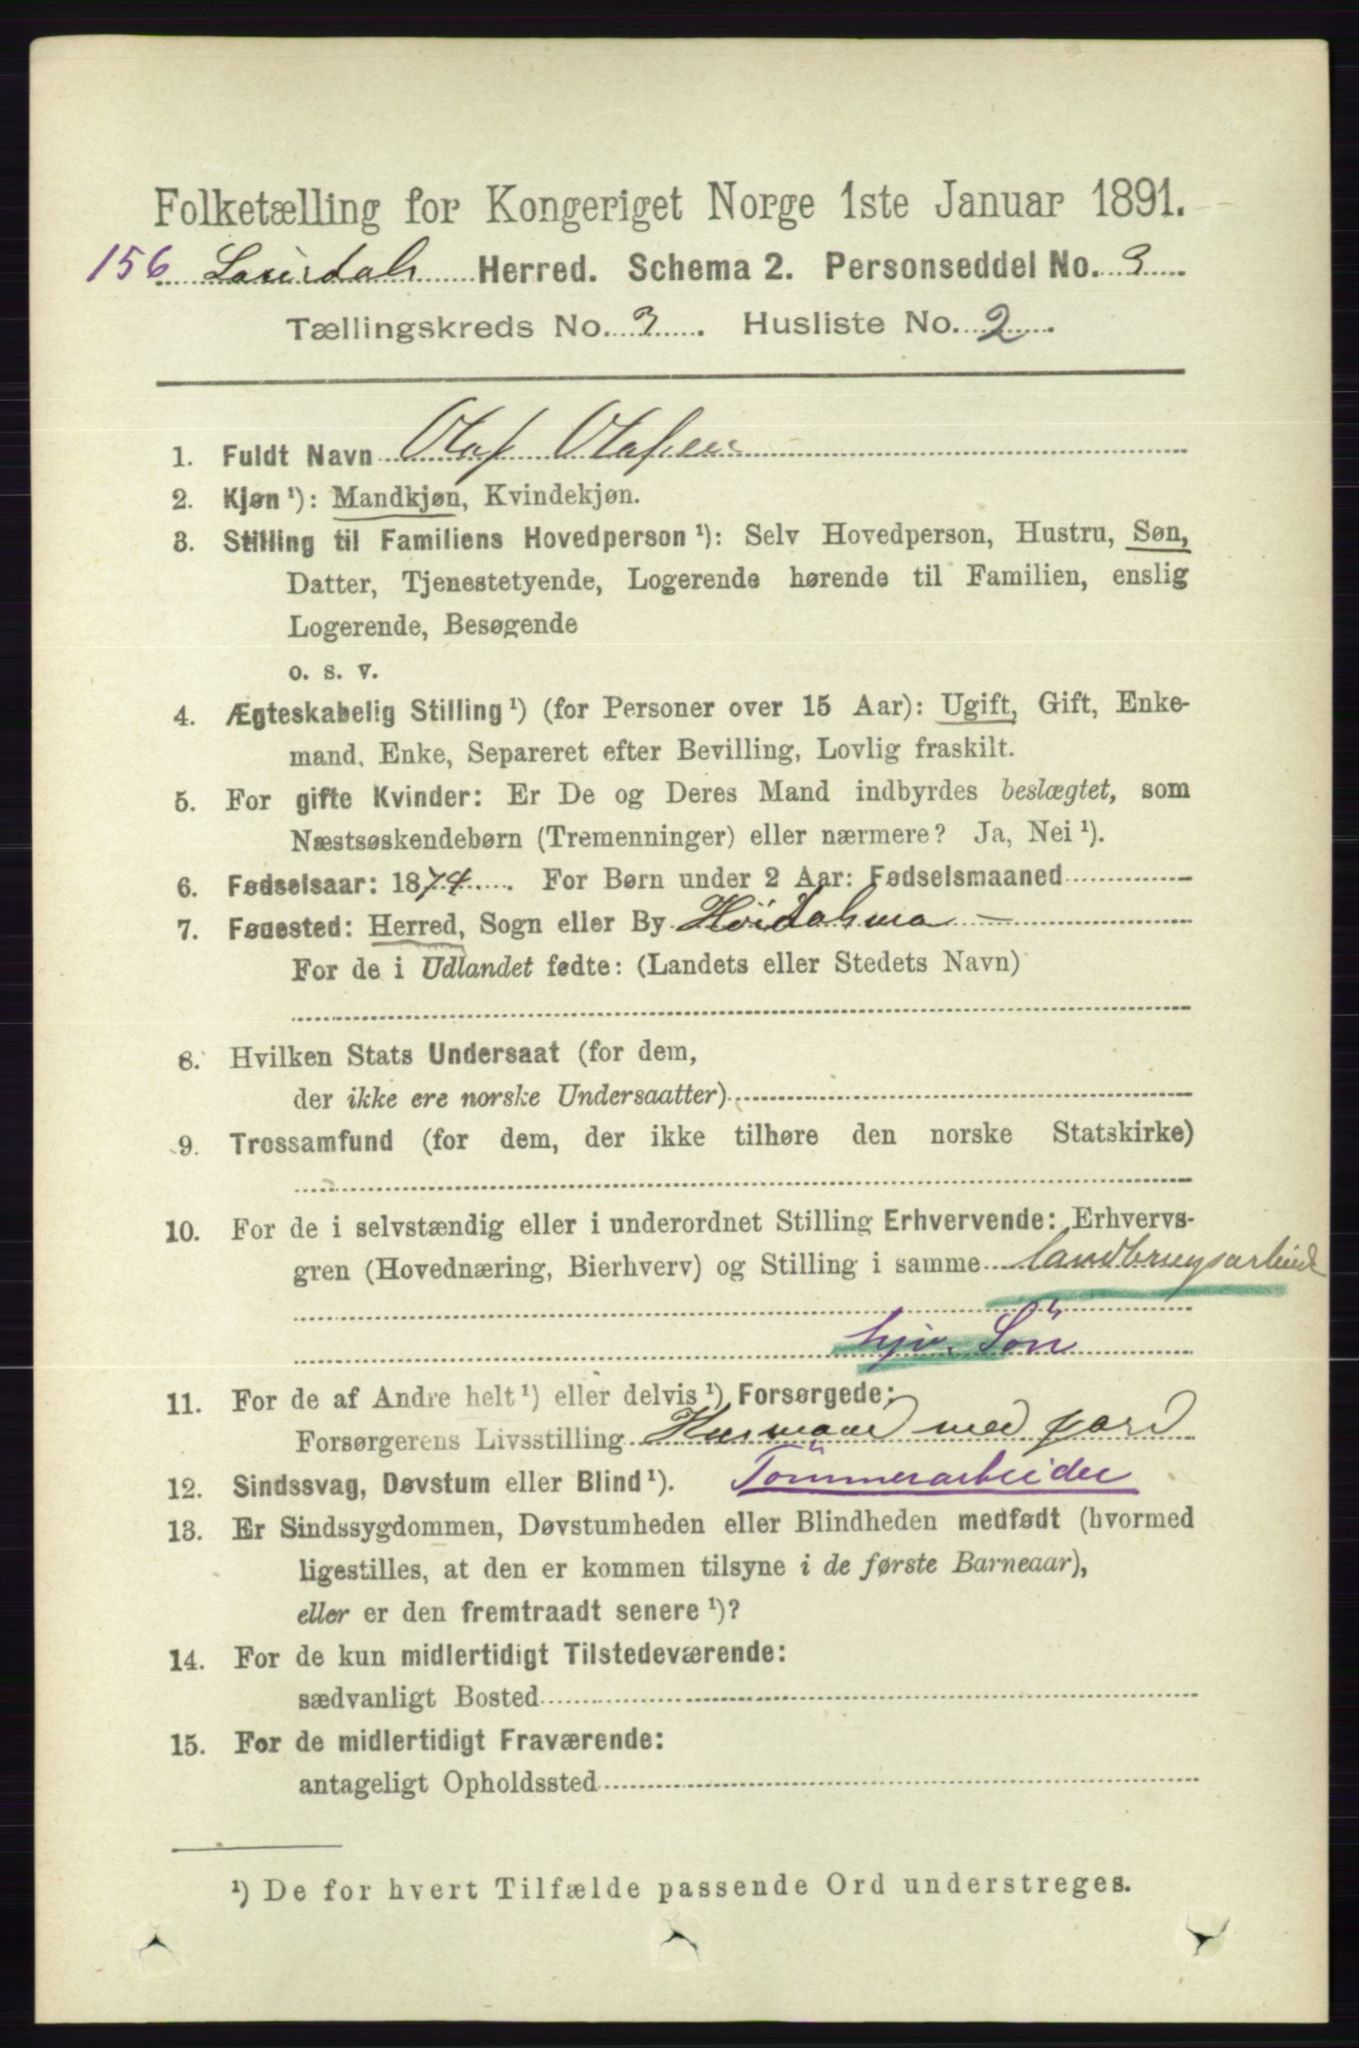 Folketælling for Kongeriget Norge 1ste Januar 1891.
156 Laurdals Herred. Schema 2. Personseddel No. 3
Tællingskreds No. 3. Husliste No. 2
1. Fuldt Navn Olaf Olafsen
2. Kjøn ¹): Mandkjøn, Kvindekjøn.
3. Stilling til Familiens Hovedperson ¹): Selv Hovedperson, Hustru, Søn,
Datter, Tjenestetyende, Logerende hørende til Familien, enslig
Logerende, Besøgende
o. s. v.
4. Ægteskabelig Stilling ¹) (for Personer over 15 Aar): Ugift, Gift, Enke-
mand, Enke, Separeret efter Bevilling, Lovlig fraskilt.
5. For gifte Kvinder: Er De og Deres Mand indbyrdes beslægtet, som
Næstsøskendebørn (Tremenninger) eller nærmere? Ja, Nei ¹).
6. Fødselsaar: 1874. For Børn under 2 Aar: Fødselsmaaned
7. Fødested: Herred, Sogn eller By Høidalsmo
For de i Udlandet fødte: (Landets eller Stedets Navn)
8. Hvilken Stats Undersaat (for dem,
der ikke ere norske Undersaatter)
9. Trossamfund (for dem, der ikke tilhøre den norske Statskirke)
10. For de i selvstændig eller i underordnet Stilling Erhvervende: Erhvervs-
gren (Hovednæring, Bierhverv) og Stilling i samme landbrugsarbeide
hjv. Sön
11. For de af Andre helt ¹) eller delvis ¹) Forsørgede:
Forsørgerens Livsstilling Husmand med jord
12. Sindssvag, Døvstum eller Blind ¹). Tömmerarbeider
13. Er Sindssygdommen, Døvstumheden eller Blindheden medfødt (hvormed
ligestilles, at den er kommen tilsyne i de første Barneaar),
eller er den fremtraadt senere ¹)?
14. For de kun midlertidigt Tilstedeværende:
sædvanligt Bosted
15. For de midlertidigt Fraværende:
antageligt Opholdssted
¹) De for hvert Tilfælde passende Ord understreges.